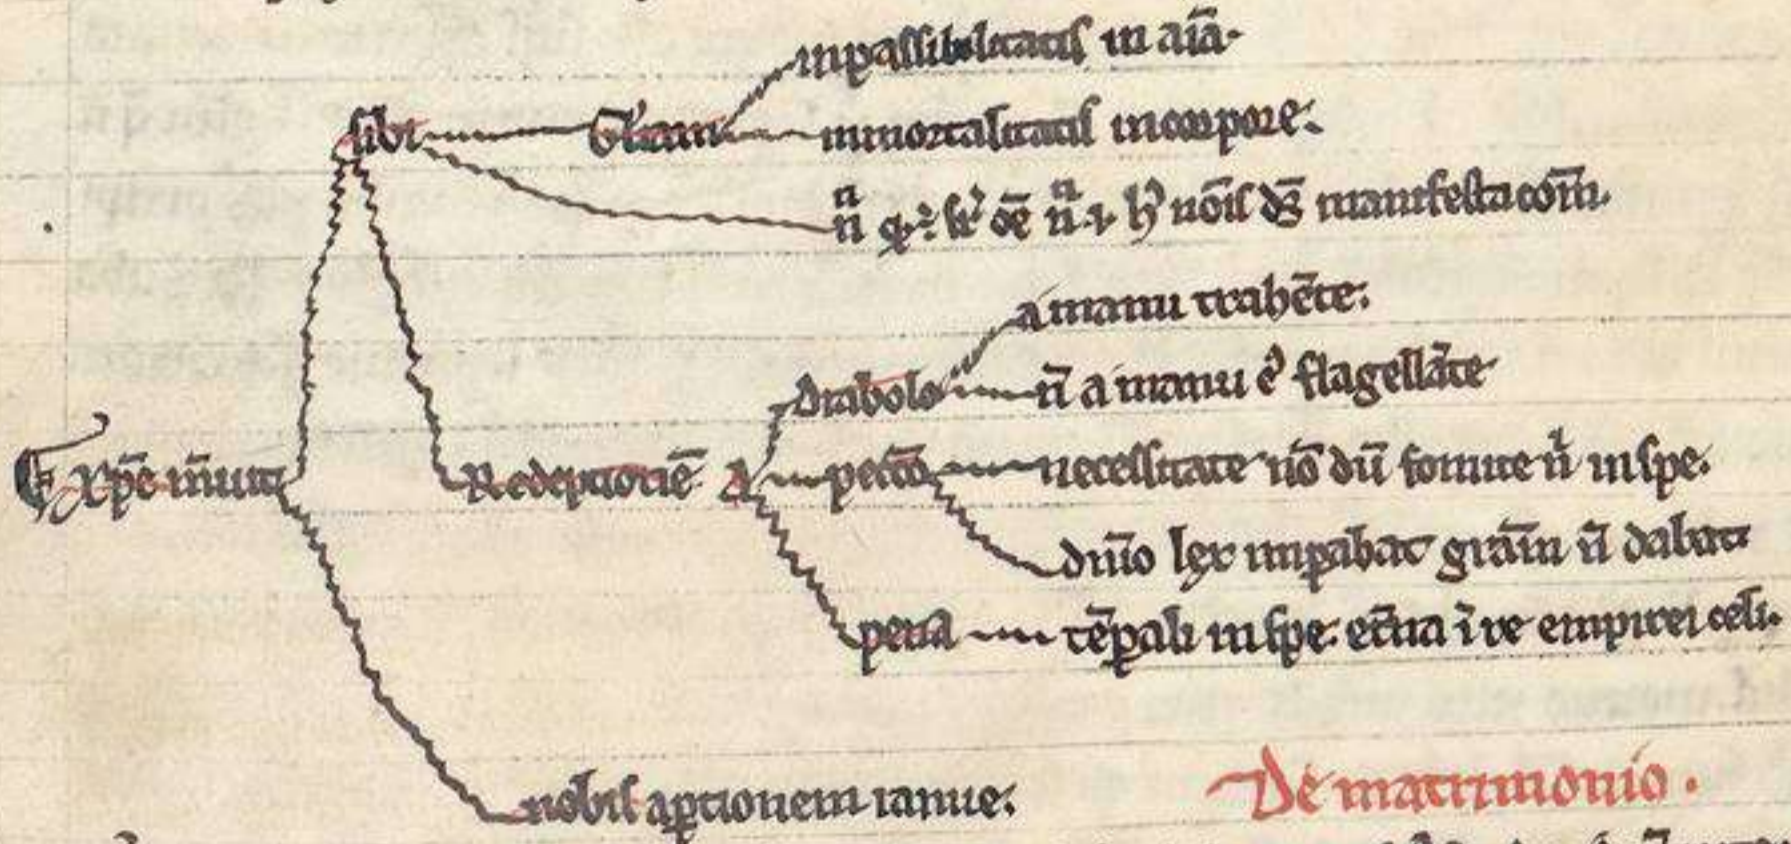 inpassibilitatis in aīa.
sibi Gl'iam inmortalitatis in corpore.
n̄ nōis manifestacōm.
a manu trahēte.
diabolo n̄ a manu flagellāte
xp̄c m̄uit Redēptionē A pctō necessitate nō dū fomite n̄ in spe.
dn̄io lex imꝑabat grām n̄ dabat
pena tēꝑali in spe. etn̄a ī re empirei celi.
nobis aꝑtionem ianue.
De matrimonio.